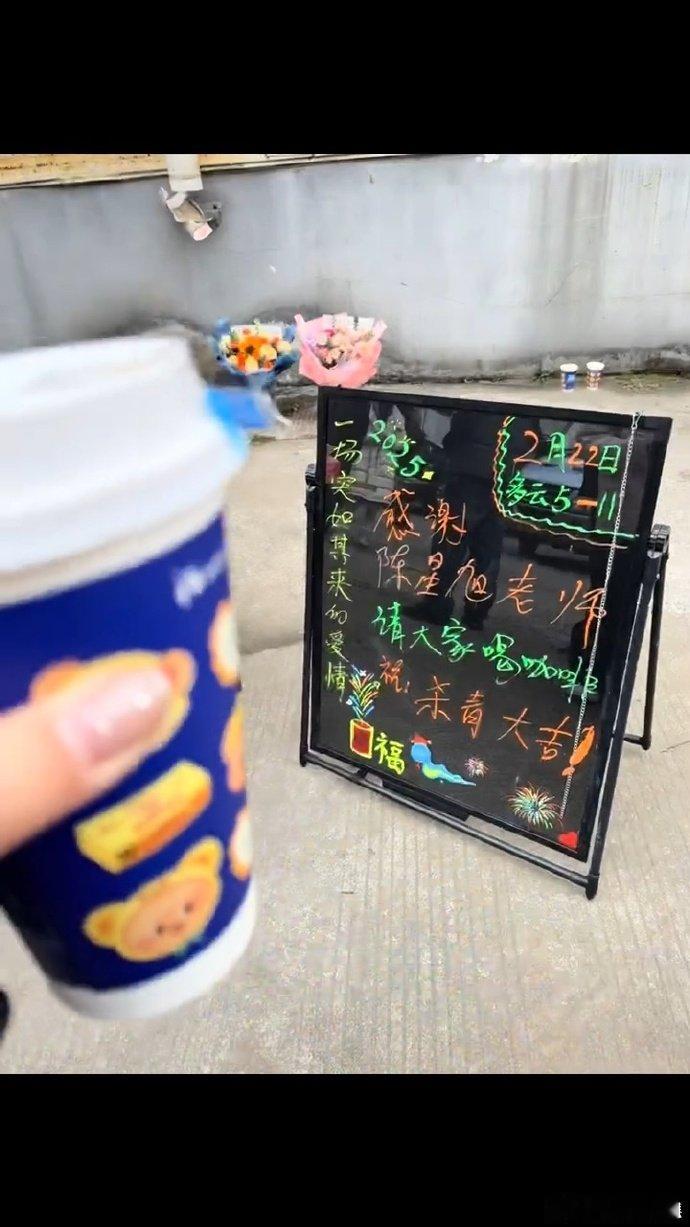 一场突如其来的爱情
2025
2月22日
多云5-11
感谢
陈星旭老师
请大家喝咖啡
祝:杀青大吉
福